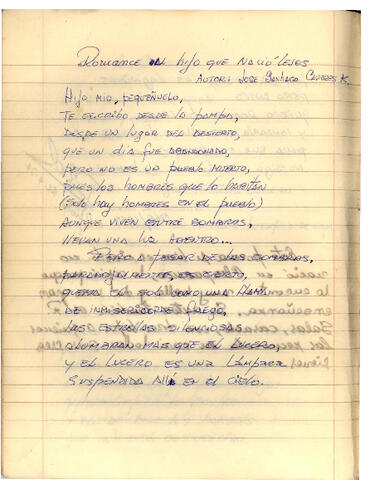 Romance al hijo que nació lejos
Autor: José Santiago Cavieres K.
Hijo mio, pequeñuelo,
Te escribo desde la pampa,
Desde un lugar del desierto,
que un dia fue abandonado,
pero no es un pueblo muerto,
pues los hombres que lo habitan
(Solo hay hombres en el pueblo)
Aunque viven entre sombras,
llevan una luz adentro...
Pero a pesar de las sombras,
es cierto,
quema el sol como una llama
de inmisericorde fuego,
las estrellas silenciosas
alumbran más que el lucero,
y el lucero es una lámpara
suspendida allá en el cielo.